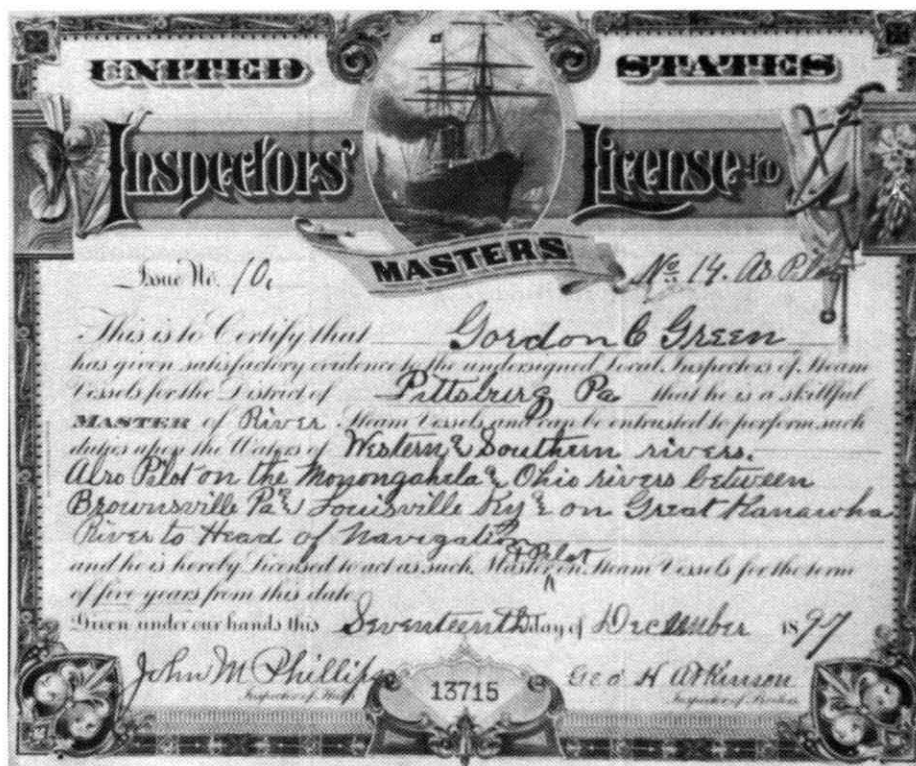 UNITED STATES
INSPECTORS' LICENSE TO
MASTERS
Issue No. 10. No 14. As
This is to Certify that Gordon C Green
has given satisfactory evidence to the undersigned Local Inspectors of Steam
Vessels for the District of Pittsburg Pa that he is a skillful
MASTER of River Steam Vessels and can be entrusted to perform such
duties upon the Waters of Western & Southern rivers.
Also Pilot on the Monongahela & Ohio rivers between
Brownsville Pa & Louisville Ky & on Great Kanawha
River to Head of Navigation
and he is hereby Licensed to act as such Master & Pilot on Steam Vessels for the term
of five years from this date
Given under our hands this Seventeenth day of December 1897
John M Phillips 13715 Geo H Atkinson
Inspector of Hulls Inspector of Boilers